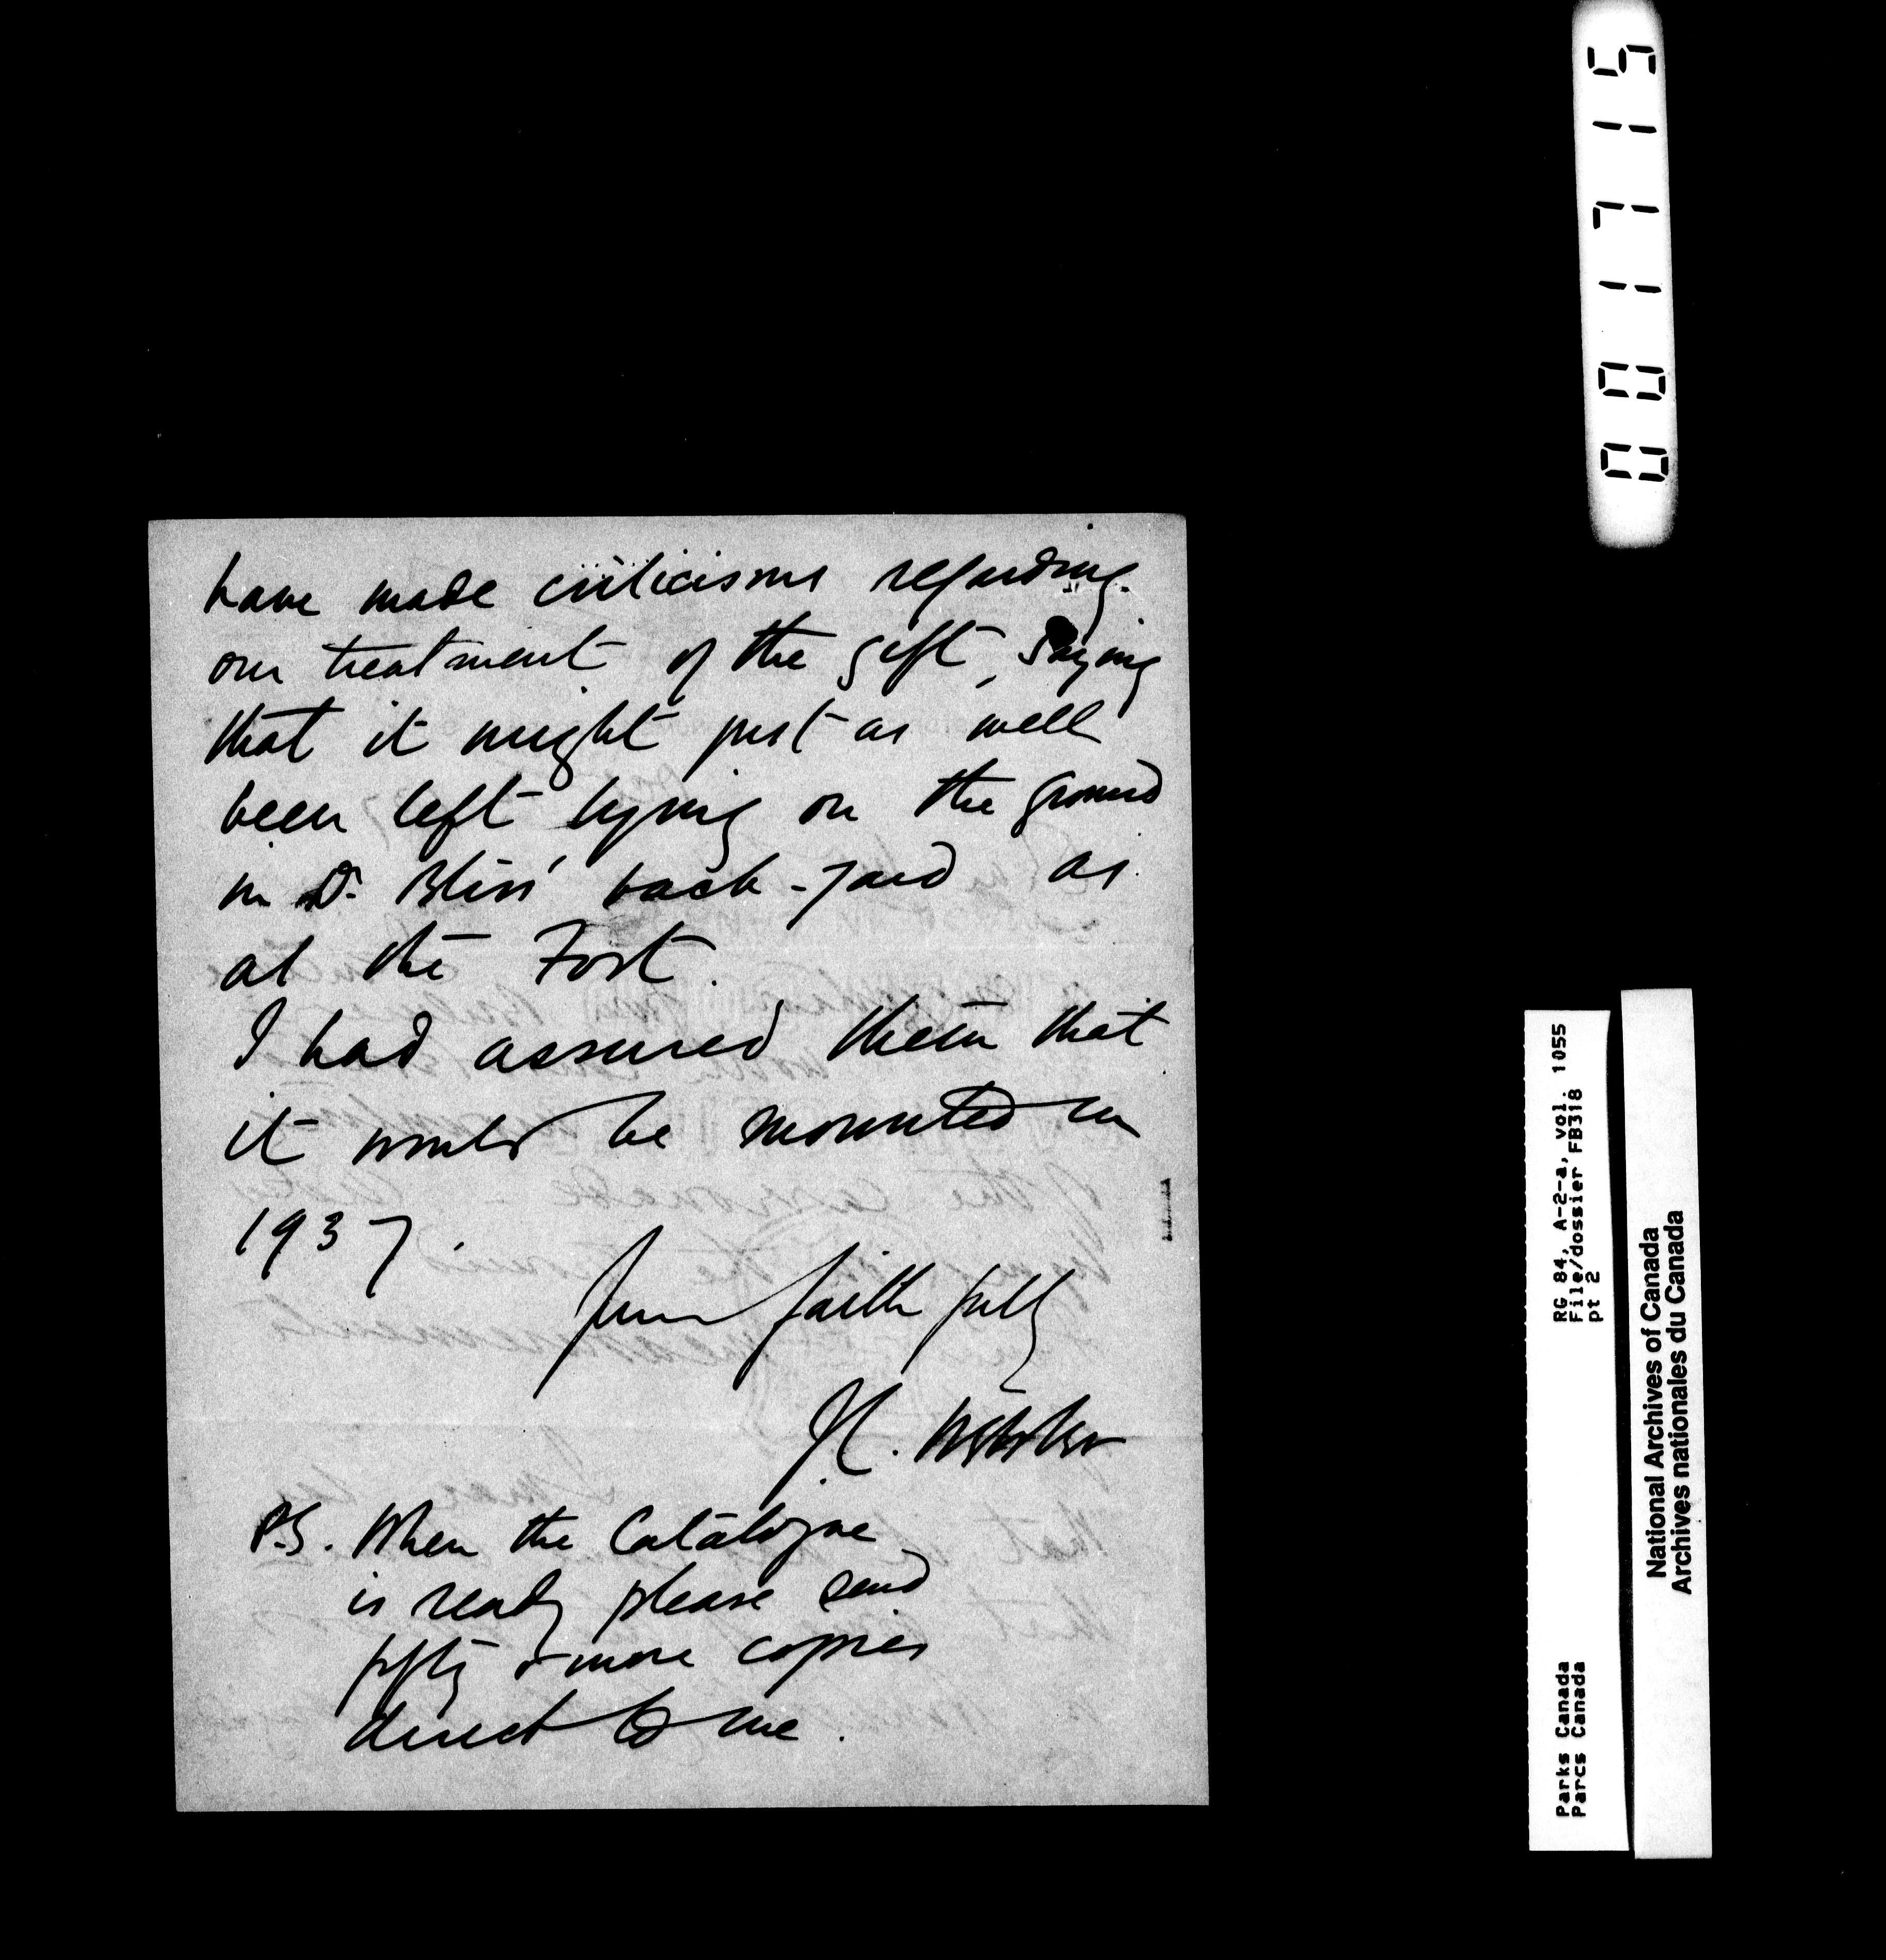 have made criticisms regarding
our treatment of the gift, saying
that it might just as well
been left lying on the ground
in Dr. Bliss' back-yard as
at the Fort.
I had assured them that
it would be mounted in
1937.
Yours faithfully
J.C. Webster
P.S. When the Catalogue
is ready please send
fifty or more copies
direct to me.
001715
Parks Canada
Parcs Canada
RG 84, A-2-a, vol. 1055
File/dossier FB318
pt 2
National Archives of Canada
Archives nationales du Canada